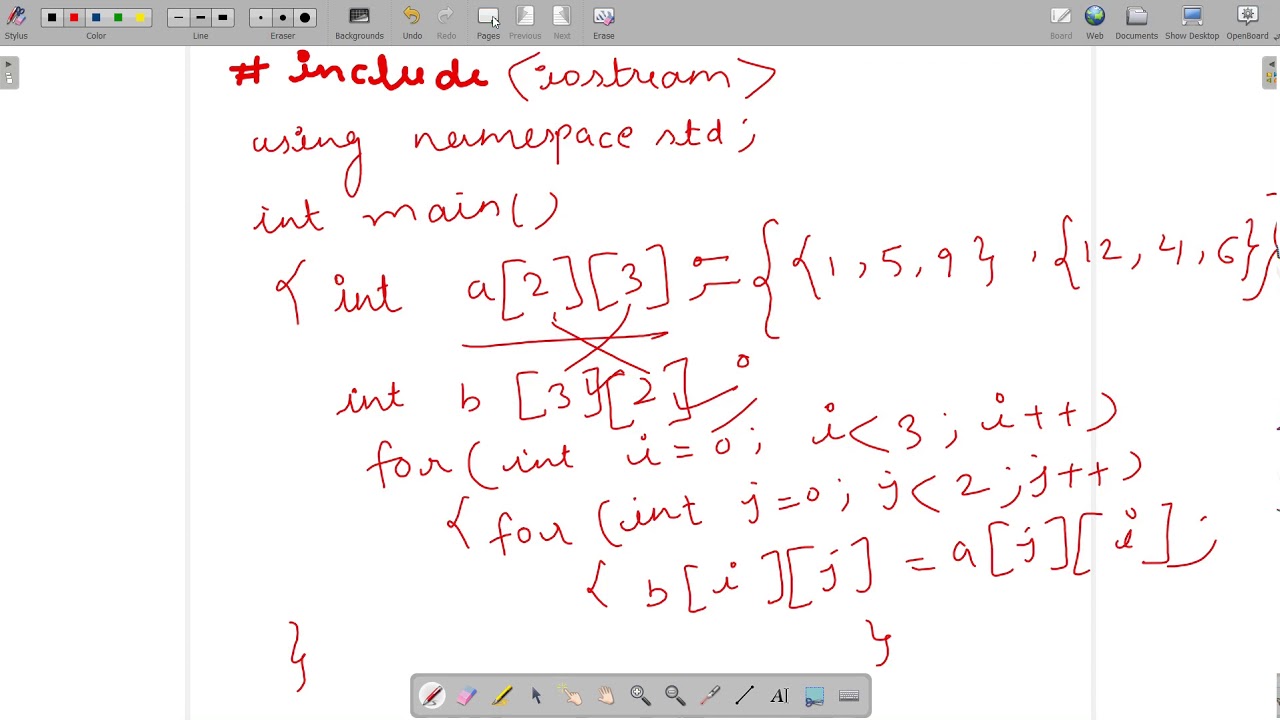 Stylus Color Line Eraser Backgrounds Undo Redo Pages Previous Next Erase Board Web Documents Show Desktop OpenBoard
# include <iostream>
using namespace std;
int main()
{ int a[2][3] = {{1, 5, 9}, {12, 4, 6}}
int b [3][2];
for(int i=0; i<3; i++)
{ for (int j=0; j<2; j++)
{ b[i][j] = a[j][i];
} }